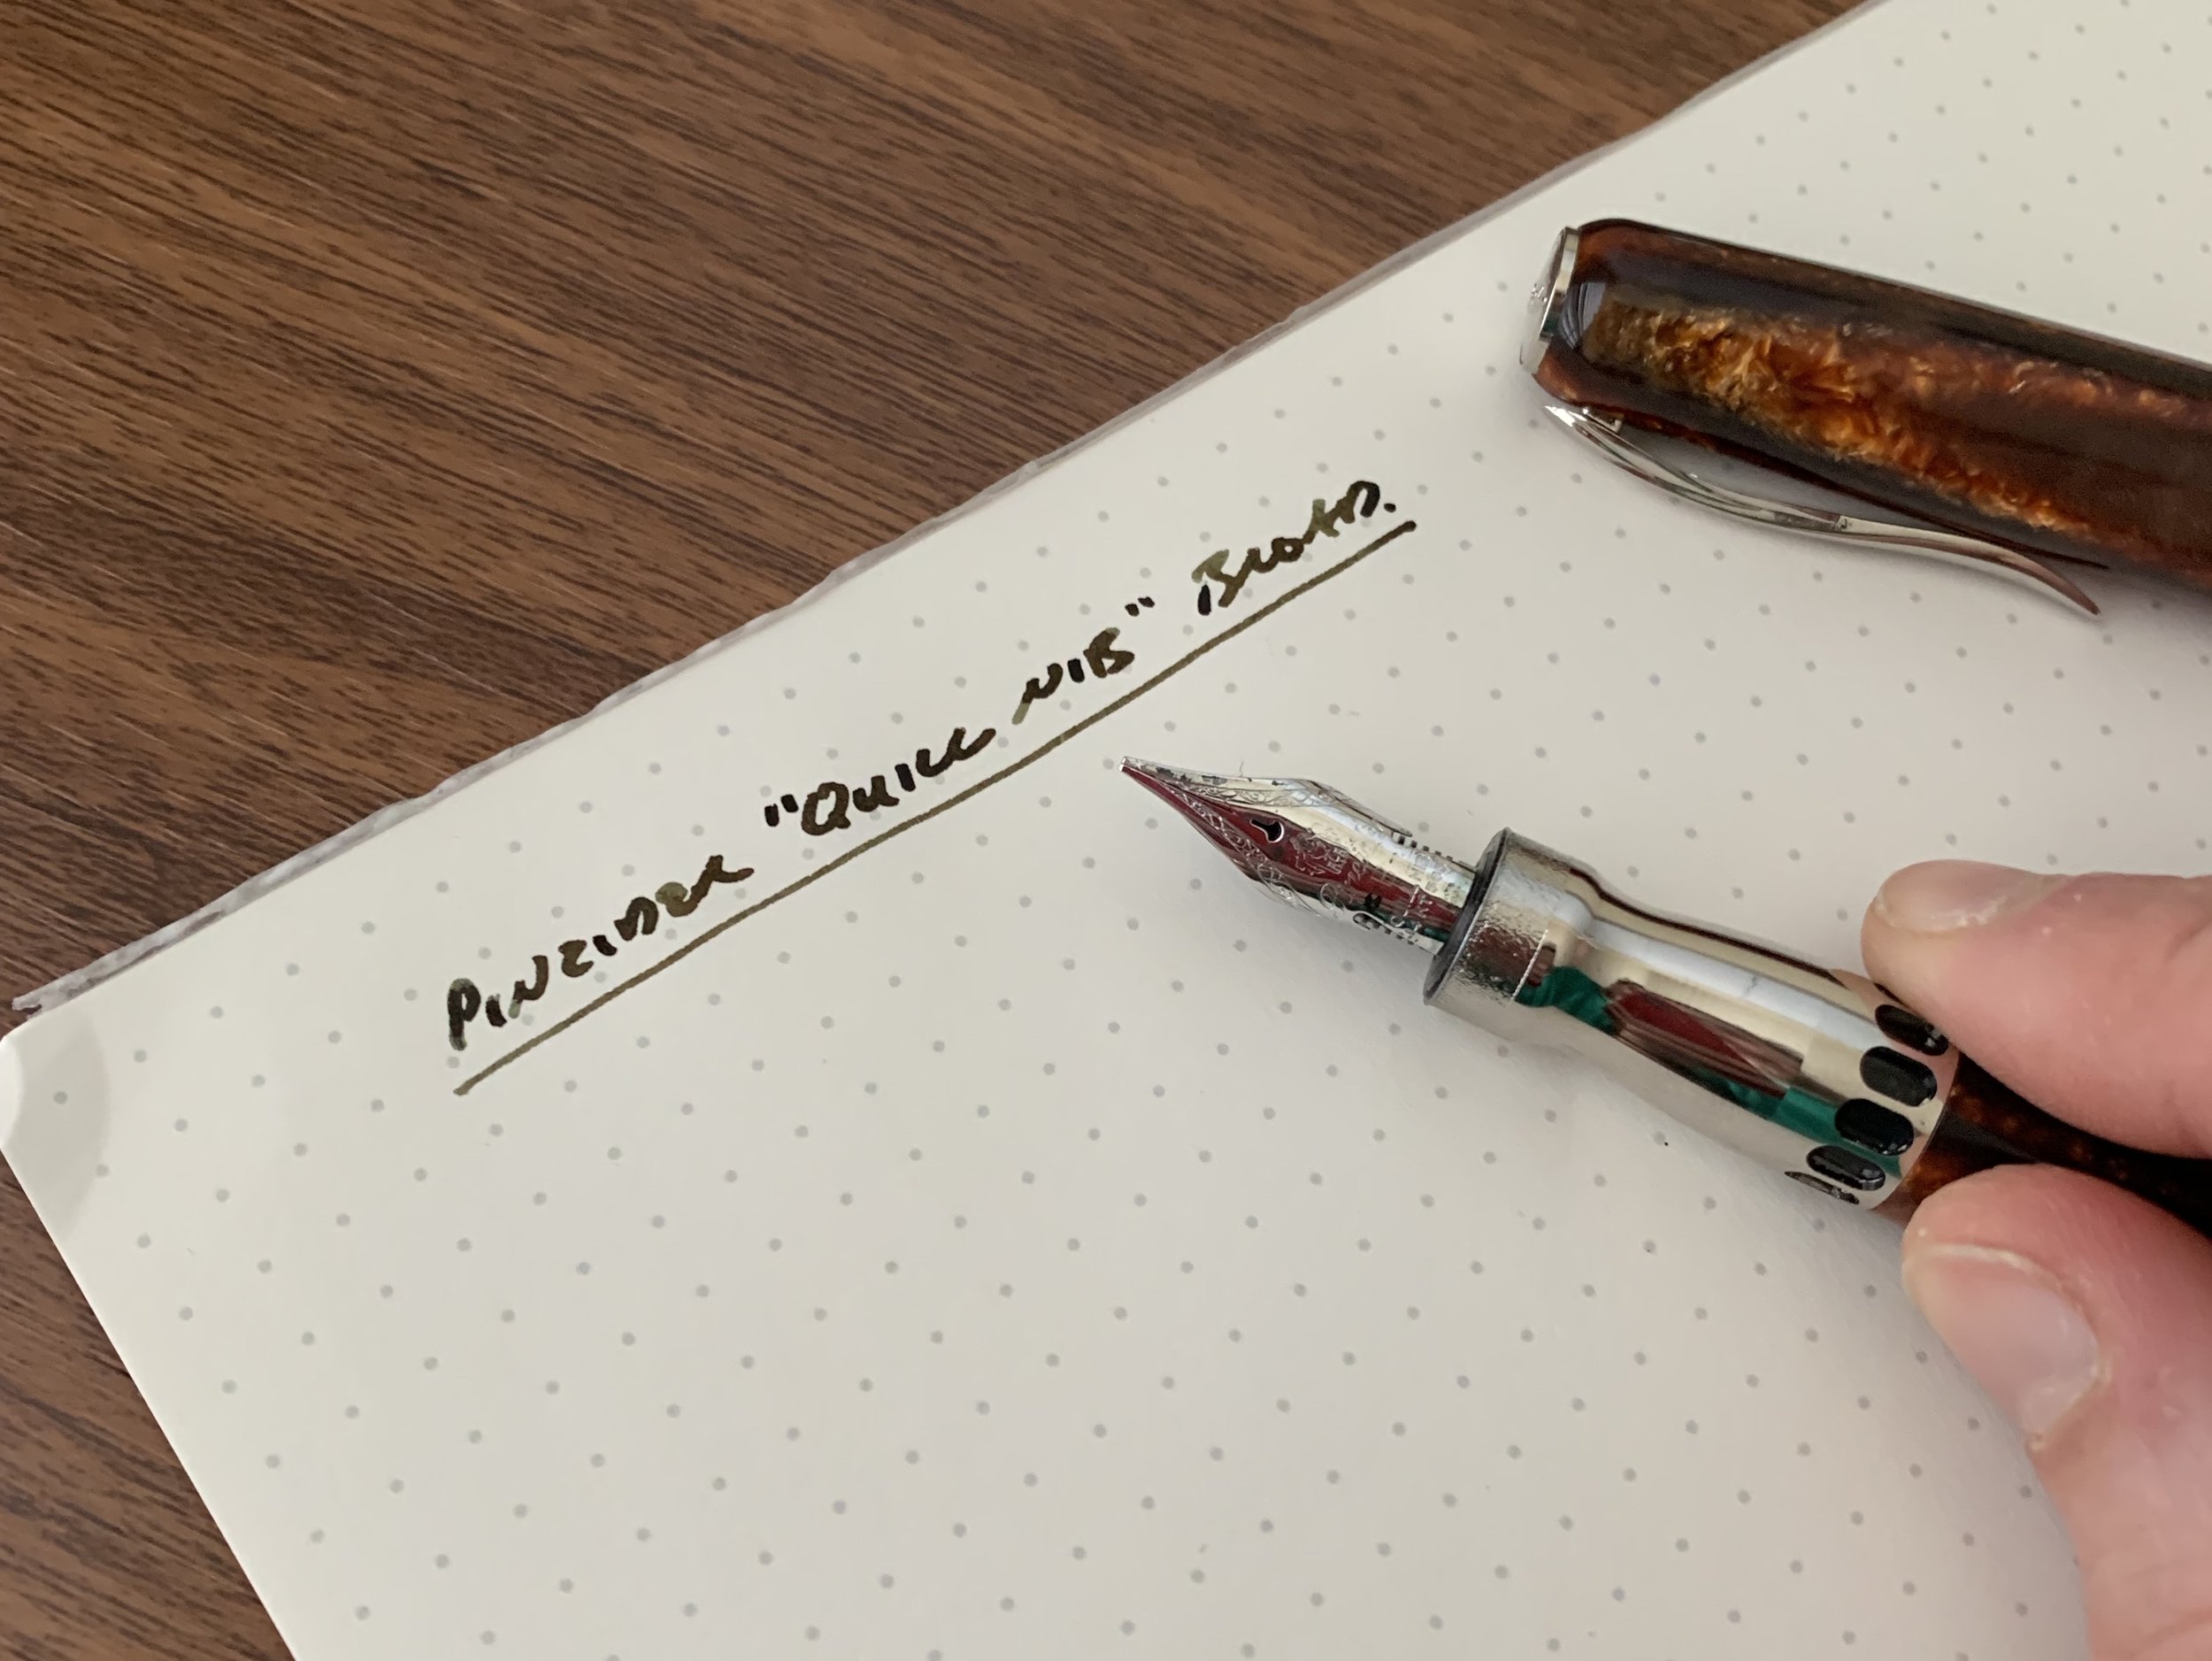 PINEIDER "QUILL NIB" BROAD.